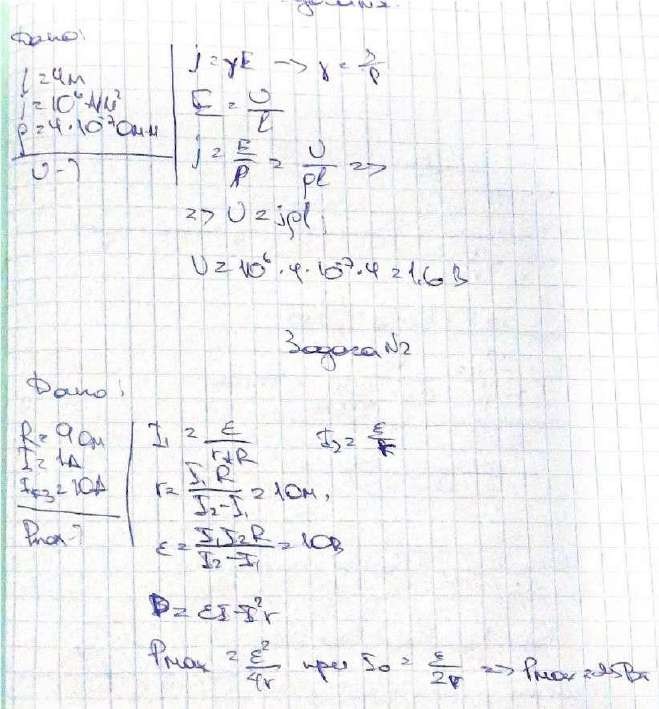 Дано:
l = 4 м
j = 10⁶ А/м²
ρ = 4·10⁻⁷ Ом·м
U - ?
j = γE → γ = 1/ρ
E = U/l
j = E/ρ = U/ρl =>
=> U = jρl
U = 10⁶ · 4 · 10⁻⁷ · 4 = 1,6 В
Задача №2
Дано:
R = 9 Ом
I = 1 А
Iкз = 10 А
Pmax - ?
I₁ = ε/(r+R) I₂ = ε/r
r = I₁R/(I₂-I₁) = 1 Ом,
ε = I₁I₂R/(I₂-I₁) = 10 В
P = εI - I²r
Pmax = ε²/4r при I₀ = ε/2r => Pmax = 25 Вт